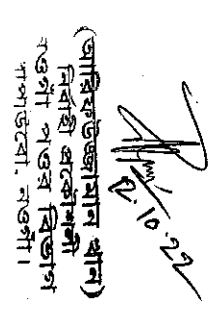 2.10.22
(আরিফউজ্জামান খান)
নির্বাহী প্রকৌশলী
নওগাঁ পওর বিভাগ
বাপাউবো, নওগাঁ।